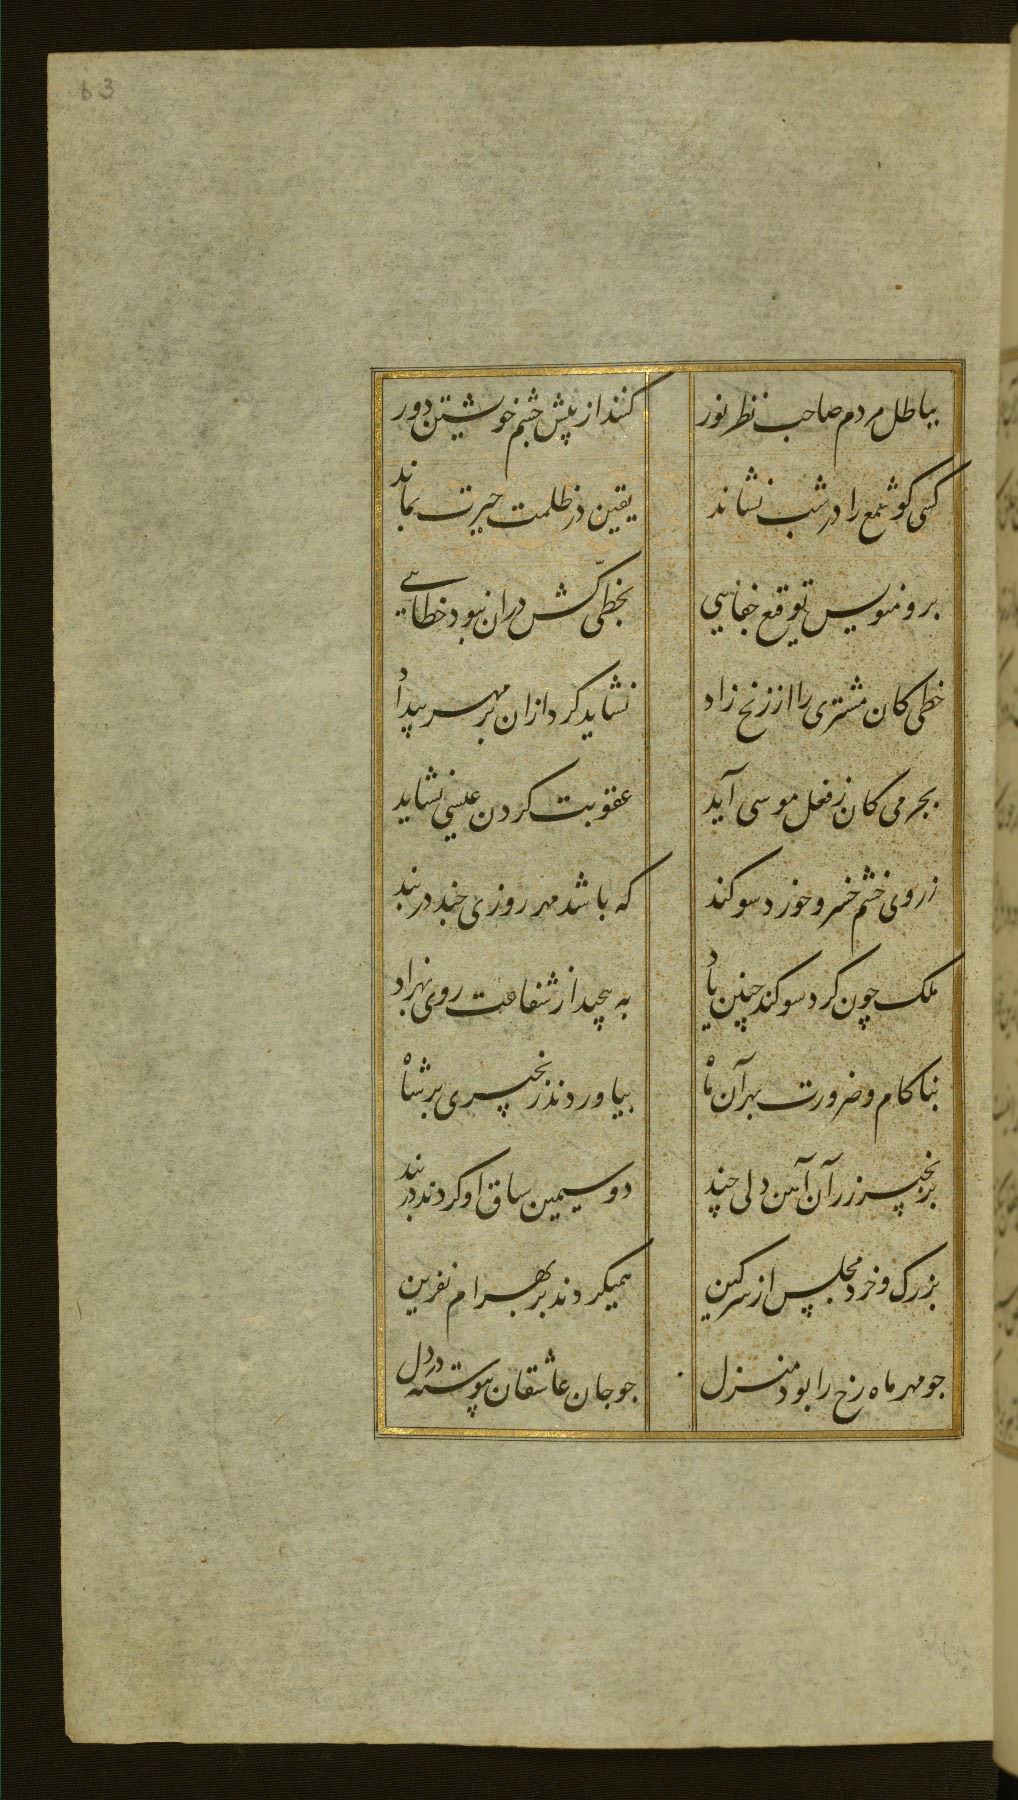 63
بباطل مردم صاحب نظر نور کنند از پیش چشم خویشتن دور
کسی کو شمع را در شب نشاند یقین در ظلمت حیرت بماند
برو منویس توقیع خفایی بخطی کش دران نبود خطایی
خطی کان مشتری را از زنخ زاد نشاید کرد ازان بر مهر بیداد
بجرمی کان ز فعل موسی آید عقوبت کردن عیسی نشاید
ز روی خشم خسرو خورد سوکند که باشد مهر روزی چند در بند
ملک چون کرد سوکند چنین یاد به پیچید از شفاعت روی بهزاد
بناکام و ضرورت بهر آن ماه بیاوردند زنجیری بر شاه
بزنجیر زر آن آهن دلی چند دو سیمین ساق او کردند در بند
بزرک و خرد مجلس از سر کین همیکردند بر بهرام نفرین
جو مهر ماه رخ را بود منزل جو جان عاشقان پیوسته در دل